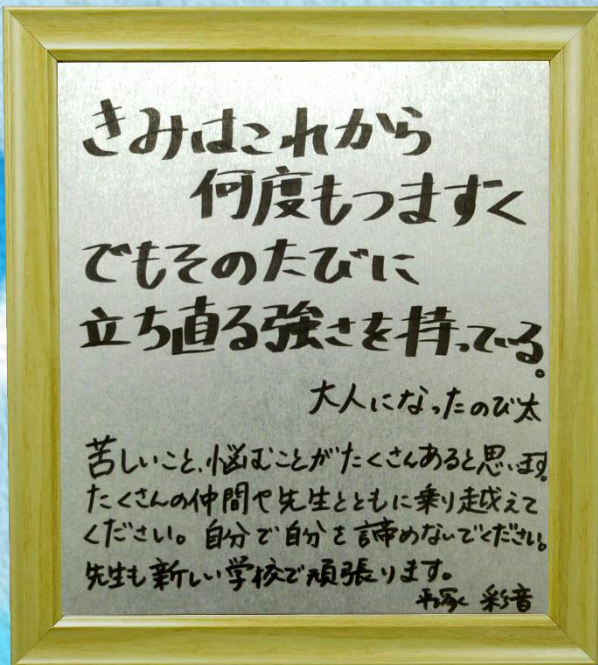 きみはこれから
何度もつまずく
でもそのたびに
立ち直る強さを持っている。
大人になったのび太
苦しいこと、悩むことがたくさんあると思います。
たくさんの仲間や先生とともに乗り越えて
ください。自分で自分を諦めないでください。
先生も新しい学校で頑張ります。
平塚 彩音